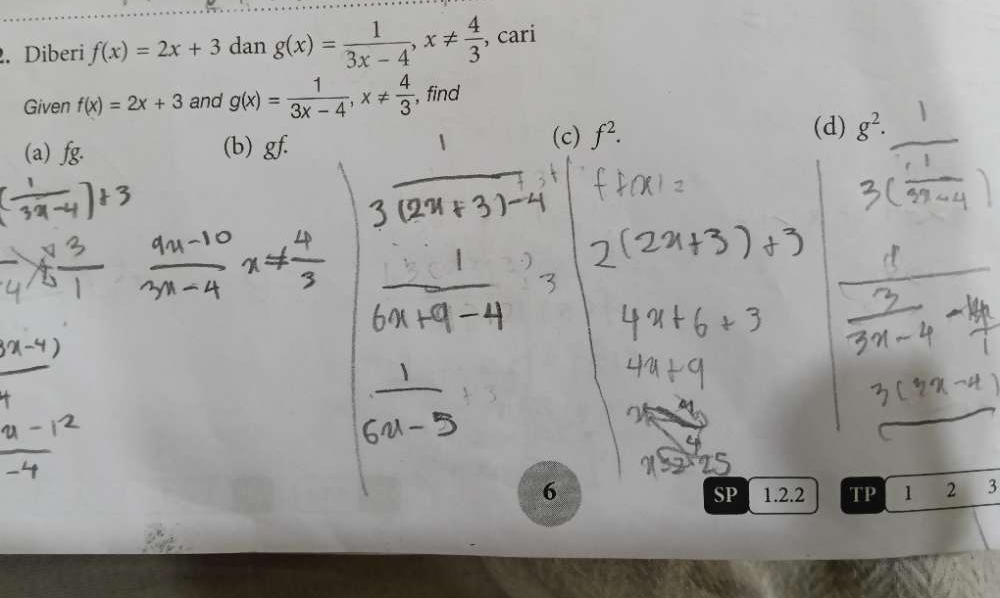 2. Diberi f(x) = 2x + 3 dan g(x) = 1/(3x – 4), x ≠ 4/3, cari
Given f(x) = 2x + 3 and g(x) = 1/(3x – 4), x ≠ 4/3, find
(a) fg.
(b) gf.
(c) f².
(d) g².
(1/(3x-4)) + 3
3/1
(9x-10)/(3x-4) x ≠ 4/3
3x-4)
x-12
-4
1/(3(2x+3)-4)
1/(6x+9-4)
1/(6x-5)
ff(x) =
2(2x+3)+3
4x+6+3
4x+9
1/(3(1/(3x-4))
3/(3x-4) -
3(3x-4)
6
SP 1.2.2
TP 1 2 3